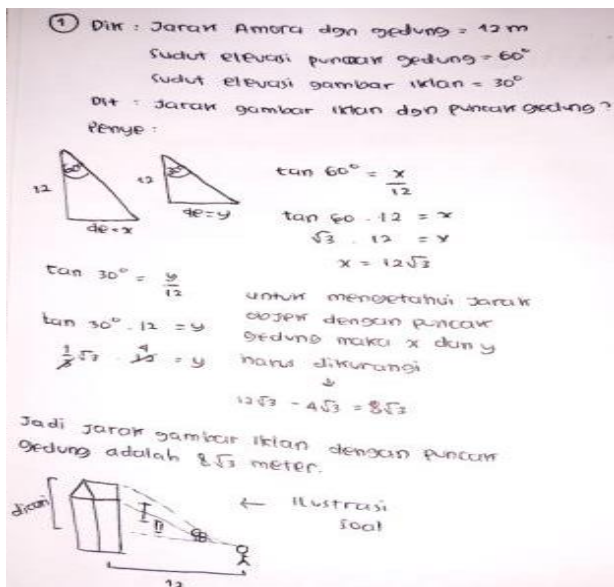 ① Dik : Jarak Amora dgn gedung = 12 m
Sudut elevasi puncak gedung = 60°
Sudut elevasi gambar iklan = 30°
Dit : Jarak gambar iklan dgn puncak gedung?
Penye :
60°
12
de = x
30°
12
de = y
tan 60° = x/12
tan 60 . 12 = x
√3 . 12 = x
x = 12√3
tan 30° = y/12
tan 30° . 12 = y
1/3 √3 . 12 4 = y
untuk mengetahui jarak
objek dengan puncak
gedung maka x dan y
harus dikurangi
↓
12√3 - 4√3 = 8√3
Jadi jarak gambar iklan dengan puncak
gedung adalah 8√3 meter.
dicari
I
II
← Ilustrasi
soal
12